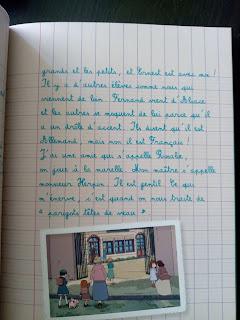 grands et les petits, et Ernest est avec moi !
Il y a d'autres élèves comme nous qui
viennent de loin. Fernand vient d'Alsace
et les autres se moquent de lui parce qu'il
a un drôle d'accent. Ils disent qu'il est
Allemand, mais non il est Français !
J'ai une amie qui s'appelle Rosalie,
on joue à la marelle. Mon maître s'appelle
monsieur Herpin. Il est gentil. Ce qui
m'énerve, c'est quand on nous traite de
" parigots têtes de veau "